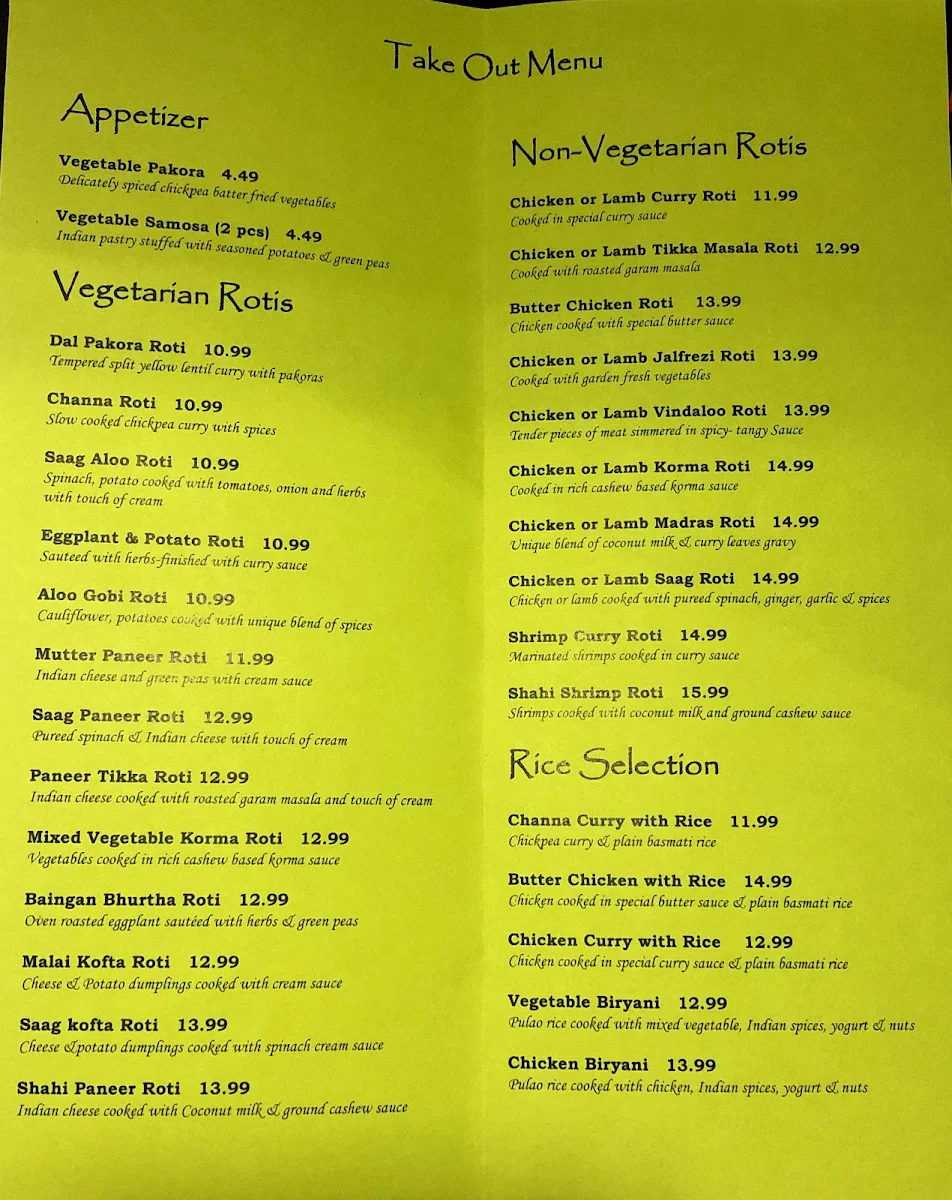 Take Out Menu
Appetizer
Vegetable Pakora 4.49
Delicately spiced chickpea batter fried vegetables
Vegetable Samosa (2 pcs) 4.49
Indian pastry stuffed with seasoned potatoes & green peas
Vegetarian Rotis
Dal Pakora Roti 10.99
Tempered split yellow lentil curry with pakoras
Channa Roti 10.99
Slow cooked chickpea curry with spices
Saag Aloo Roti 10.99
Spinach, potato cooked with tomatoes, onion and herbs
with touch of cream
Eggplant & Potato Roti 10.99
Sauteed with herbs-finished with curry sauce
Aloo Gobi Roti 10.99
Cauliflower, potatoes cooked with unique blend of spices
Mutter Paneer Roti 11.99
Indian cheese and green peas with cream sauce
Saag Paneer Roti 12.99
Pureed spinach & Indian cheese with touch of cream
Paneer Tikka Roti 12.99
Indian cheese cooked with roasted garam masala and touch of cream
Mixed Vegetable Korma Roti 12.99
Vegetables cooked in rich cashew based korma sauce
Baingan Bhurtha Roti 12.99
Oven roasted eggplant sautéed with herbs & green peas
Malai Kofta Roti 12.99
Cheese & Potato dumplings cooked with cream sauce
Saag kofta Roti 13.99
Cheese &potato dumplings cooked with spinach cream sauce
Shahi Paneer Roti 13.99
Indian cheese cooked with Coconut milk & ground cashew sauce
Non-Vegetarian Rotis
Chicken or Lamb Curry Roti 11.99
Cooked in special curry sauce
Chicken or Lamb Tikka Masala Roti 12.99
Cooked with roasted garam masala
Butter Chicken Roti 13.99
Chicken cooked with special butter sauce
Chicken or Lamb Jalfrezi Roti 13.99
Cooked with garden fresh vegetables
Chicken or Lamb Vindaloo Roti 13.99
Tender pieces of meat simmered in spicy- tangy Sauce
Chicken or Lamb Korma Roti 14.99
Cooked in rich cashew based korma sauce
Chicken or Lamb Madras Roti 14.99
Unique blend of coconut milk & curry leaves gravy
Chicken or Lamb Saag Roti 14.99
Chicken or lamb cooked with pureed spinach, ginger, garlic & spices
Shrimp Curry Roti 14.99
Marinated shrimps cooked in curry sauce
Shahi Shrimp Roti 15.99
Shrimps cooked with coconut milk and ground cashew sauce
Rice Selection
Channa Curry with Rice 11.99
Chickpea curry & plain basmati rice
Butter Chicken with Rice 14.99
Chicken cooked in special butter sauce & plain basmati rice
Chicken Curry with Rice 12.99
Chicken cooked in special curry sauce & plain basmati rice
Vegetable Biryani 12.99
Pulao rice cooked with mixed vegetable, Indian spices, yogurt & nuts
Chicken Biryani 13.99
Pulao rice cooked with chicken, Indian spices, yogurt & nuts